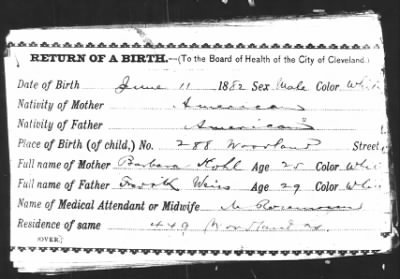 RETURN OF A BIRTH.—(To the Board of Health of the City of Cleveland.)
Date of Birth June 11 1882 Sex Male Color Whit
Nativity of Mother American
Nativity of Father American
Place of Birth (of child,) No. 288 Woodland Street
Full name of Mother Barbara Kohl Age 25 Color Whi
Full name of Father Weiss Age 29 Color Whi
Name of Medical Attendant or Midwife M
Residence of same 449 Woodland
(OVER.)